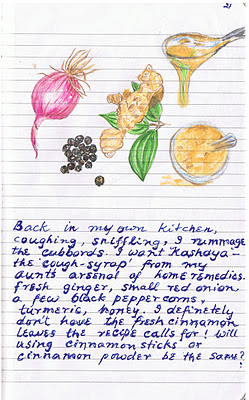 21
Back in my own kitchen,
coughing, sniffling, I rummage
the cubbords. I want Kashaya -
the cough-syrup from my
aunt's arsenal of home remedies.
fresh ginger, small red onion
a few black peppercorns,
turmeric, honey. I definetely
don't have the fresh cinnamon
leaves the recipe calls for! Will
using cinnamon sticks or
cinnamon powder be the same?